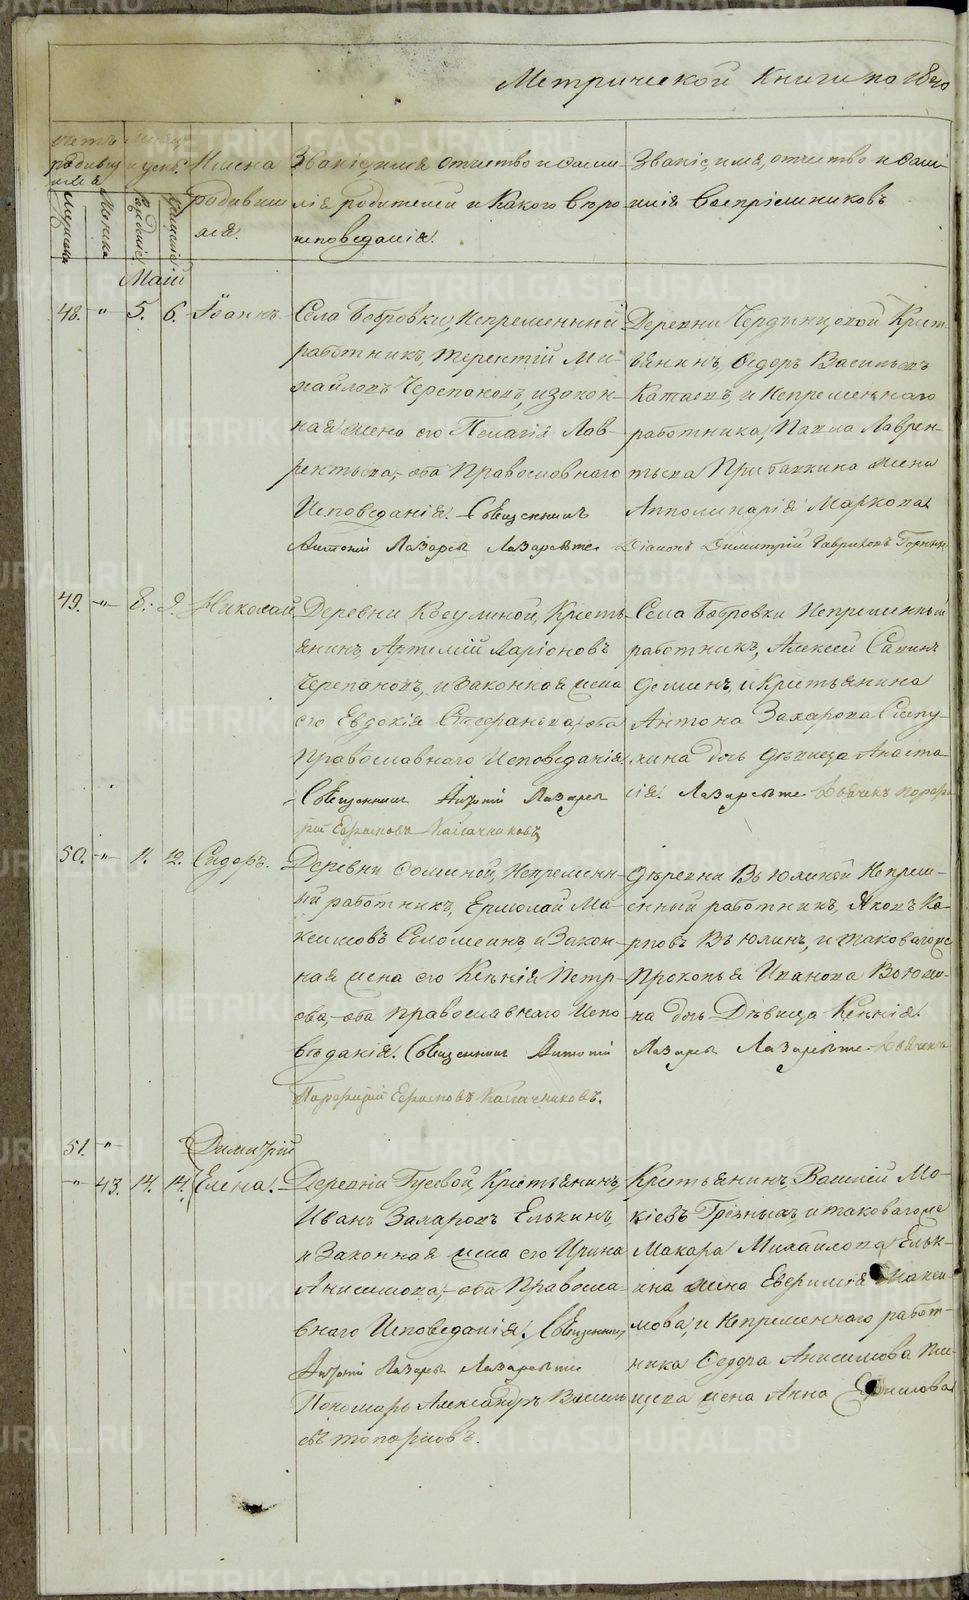 Метрической Книги на 1840
счетъ родивш ихся
Месяцъ и день
Имена родивш ихся.
Званіе, имя, отчество и фами
лія родителей и Какого Веро
исповеданія.
Званіе, имя, отчество и фами
лія Воспріемниковъ
мужска
Женска
рожденія
крещенія
Маій
48. " 5. 6. Іоаннъ.
Села Бобровки, Непременный
работникъ, Терентій Ми-
хайловъ Черепановъ, и закон-
ная жена его Пелагія Лав-
рентьева, оба Православнаго
Исповеданія. Священникъ
Антоній Лазаревъ
Деревни Чердынцовой Кресть
янинъ, Федоръ Васильевъ
Катаевъ, и Непременнаго
работника, Павла Лаврен-
тьева Прибавкина жена
Апполинарія Маркова.
Діаконъ Димитрій Гавриловъ
49. " 8. 9. Николай
Деревни Косулиной, Кресть-
янинъ, Артемій Ларіоновъ
Черепановъ, и законная жена
его Евдокія Стефанова, оба
Православнаго Исповеданія.
Священникъ Антоній Лазаревъ
рій Ефремовъ Калачниковъ
Села Бобровки Непременный
работникъ, Алексей Савинъ
Фоминъ, и Крестьянина
Антона Захарова
лина дочь девица Анаста-
сія. Дьячекъ Порфи
50. " 11. 12. Сидоръ.
Деревни Фоминой, Непременн-
ый работникъ, Ермолай Ма-
ксимовъ Соломеинъ, и закон-
ная жена его Ксенія Петр-
ова, оба православнаго Испо
веданія. Священникъ Антоній
Порфирій Ефремовъ Калачниковъ.
Деревни Вьюхиной Непрем-
енный работникъ, Яковъ Ка
рповъ Вьюхинъ, и таковагоже
Прокопья Иванова Вьюхи-
на дочь Девица Ксенія.
Лазаревъ Дьячекъ
51. " Димитрій
" 43. 14. 14. Елена.
Деревни Гусевой, Крестьянинъ,
Иванъ Захаровъ Елькинъ,
и Законная жена его Ирина
Анисимова, оба Правосла-
внаго Исповеданія. Священникъ
Антоній Лазаревъ
Пономарь Александръ Василь
евъ Топорковъ.
Крестьянинъ, Василій Мо-
кіевъ Грязныхъ, и таковагоже
Макара Михайлова Ельк-
ина жена Евфимія Макси-
мова, и Непременнаго работ-
ника Федора Анисимова
жена Анна Ефимова
METRIKI.GASO-URAL.RU